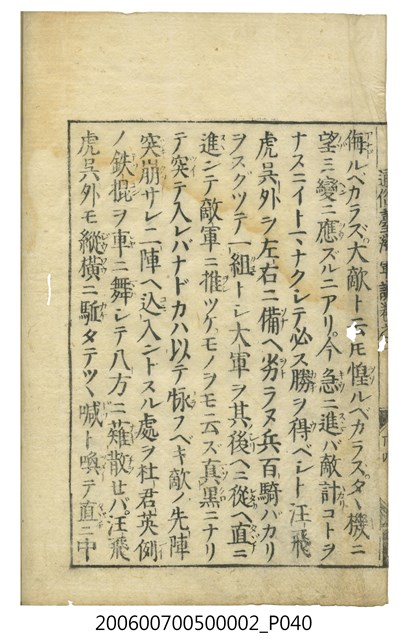 侮ルベカラズ大敵トモ惶ルベカラスタヽ機ニ
望ミ變ニ應ズルニアリ今急ニ進バ敵計コトヲ
ナスニイトマナクシテ必ス勝ヲ得ベシト汪飛
虎呉外ヲ左右ニ備ヘ劣ラヌ兵百騎バカリ
ヲスグツテ一組トシ大軍ヲ其後ヘニ從ヘ直ニ
進ンテ敵軍ニ推ツケモノヲモ云ズ真黒ニナリ
テ突テ入レバナドカハ以テ怺フベキ敵ノ先陣
突崩サレ二陣ヘ込入ントスル處ヲ杜君英例
ノ鉄棍ヲ車ニ舞シテ八方ニ薙散セバ汪飛
虎呉外モ縱横ニ駈タテツヽ喊ト喚テ直ニ中
200600700500002_P040